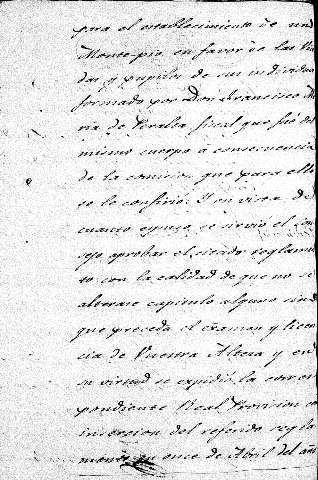 para el establecimiento de un
Monte-pio en favor de las Viu
das y pupilos de sus individuos
formado por Don Francisco Ma
ria de Peralta fiscal que fué del
mismo cuerpo à consecuencia
de la comision que para ello
se le confirió. Y en vista de
cuanto espuso se sirvió el Con
sejo aprobar el citado reglamen
to con la calidad de que no se
alterase capitulo alguno sin
que preceda el examen y licen
cia de Vuestra Alteza y en
su virtud se expidió la corres
pondiente Real Provision con
insercion del referido regla
mento en once de Abril del año